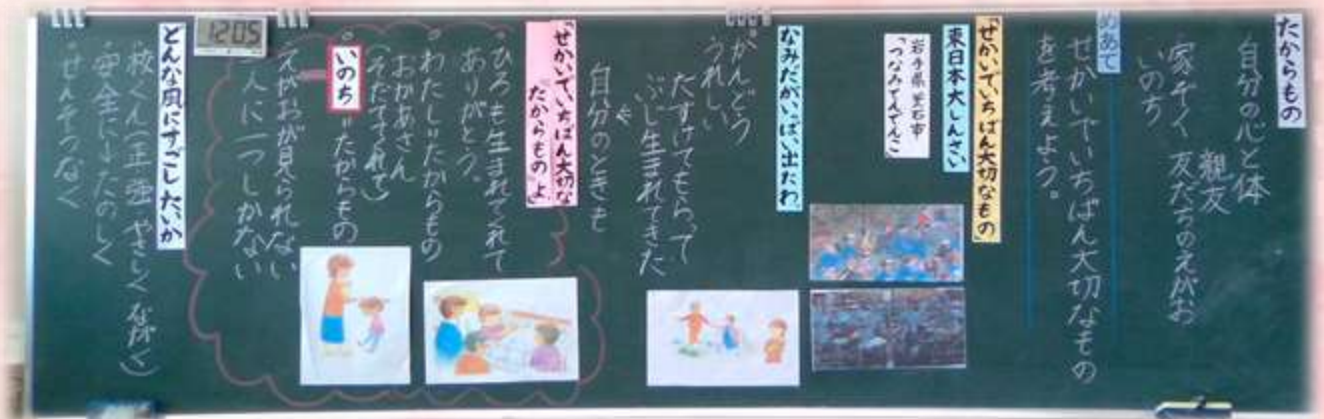 たからもの
自分の心と体
親友
家ぞく 友だちのえがお
いのち
めあて
せかいでいちばん大切なもの
を考えよう。
「せかいでいちばん大切なもの」
東日本大しんさい
岩手県 釜石市
「つなみてんでんこ」
なみだがいっぱい出たわ
かんどう
うれしい
たすけてもらって
ぶじ生まれてきた
自分のときも
「せかいでいちばん大切な
たからもの」よ
ひろも生まれてくれて
ありがとう。
わたし=たからもの
おかあさん
(そだててくれて)
いのち
=たからもの
えがおが見られない
一人に一つしかない
12:05
どんな風にすごしたいか
・安全にたのしく
・せんそうなく